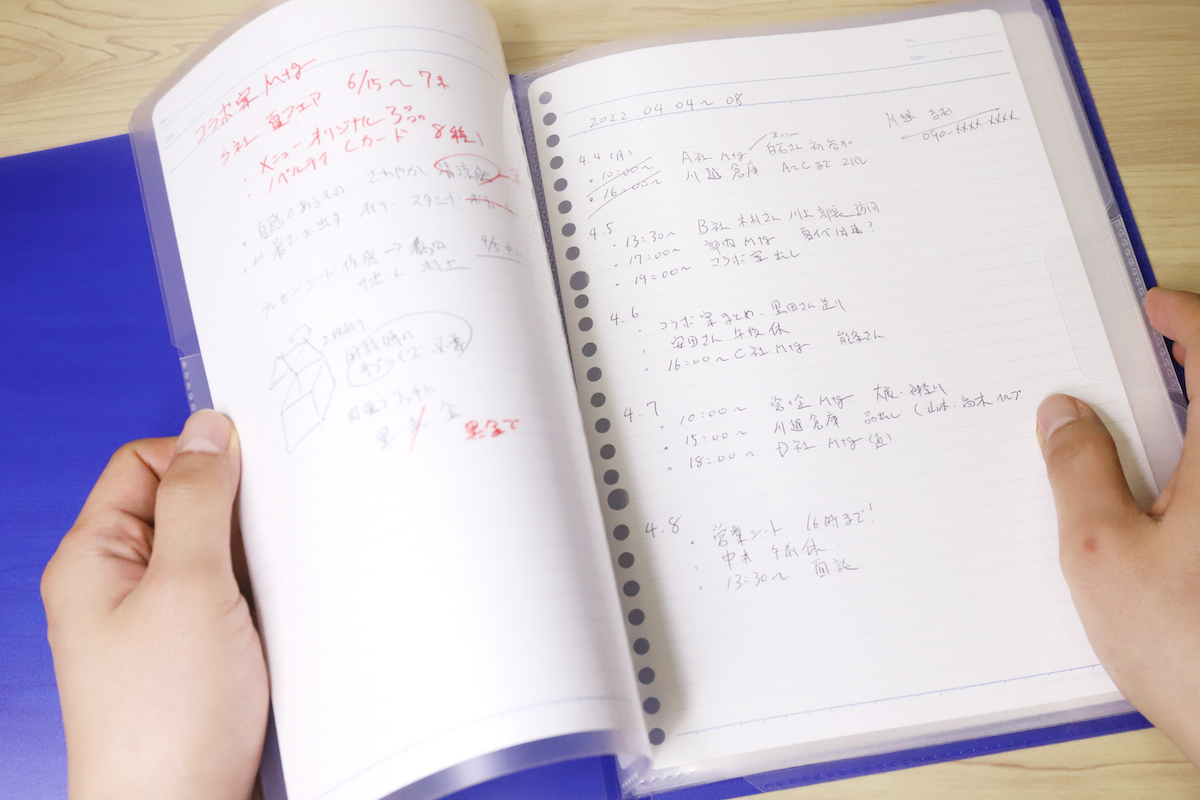 コラボ案 Mtg
S社 夏フェア 6/15〜7末
・メニュー オリジナル3品
・ノベルティ(カード 8種)
さわやか 清涼感
直感
スタンド
プレゼンシート作成→
サポート 村上
開封時の
サプライズ 必要
金
黒金で
No.
Date
2022 04.04〜08
川越 吉村
090-XXXX-XXXX
4.4(月)
・10:00〜 A社 Mtg 白石社 初参加
・16:00〜 川越倉庫 A〜Cまで
4.5
・13:30〜 B社 木村さん 川上部長 訪問
・17:00〜 部内 Mtg
・19:00〜 コラボ案出し
4.6
・コラボ案まとめ、黒田さん送り
・安田さん 午後休
・16:00〜 C社 Mtg 能条さん
4.7
・10:00〜 営・企 Mtg 大阪・神奈川
・15:00〜 川越倉庫 品出し(山本・高木ヘルプ
・18:00〜 D社 Mtg(直)
4.8
・営業シート 16時まで!
・中井 午前休
・13:30〜 面談